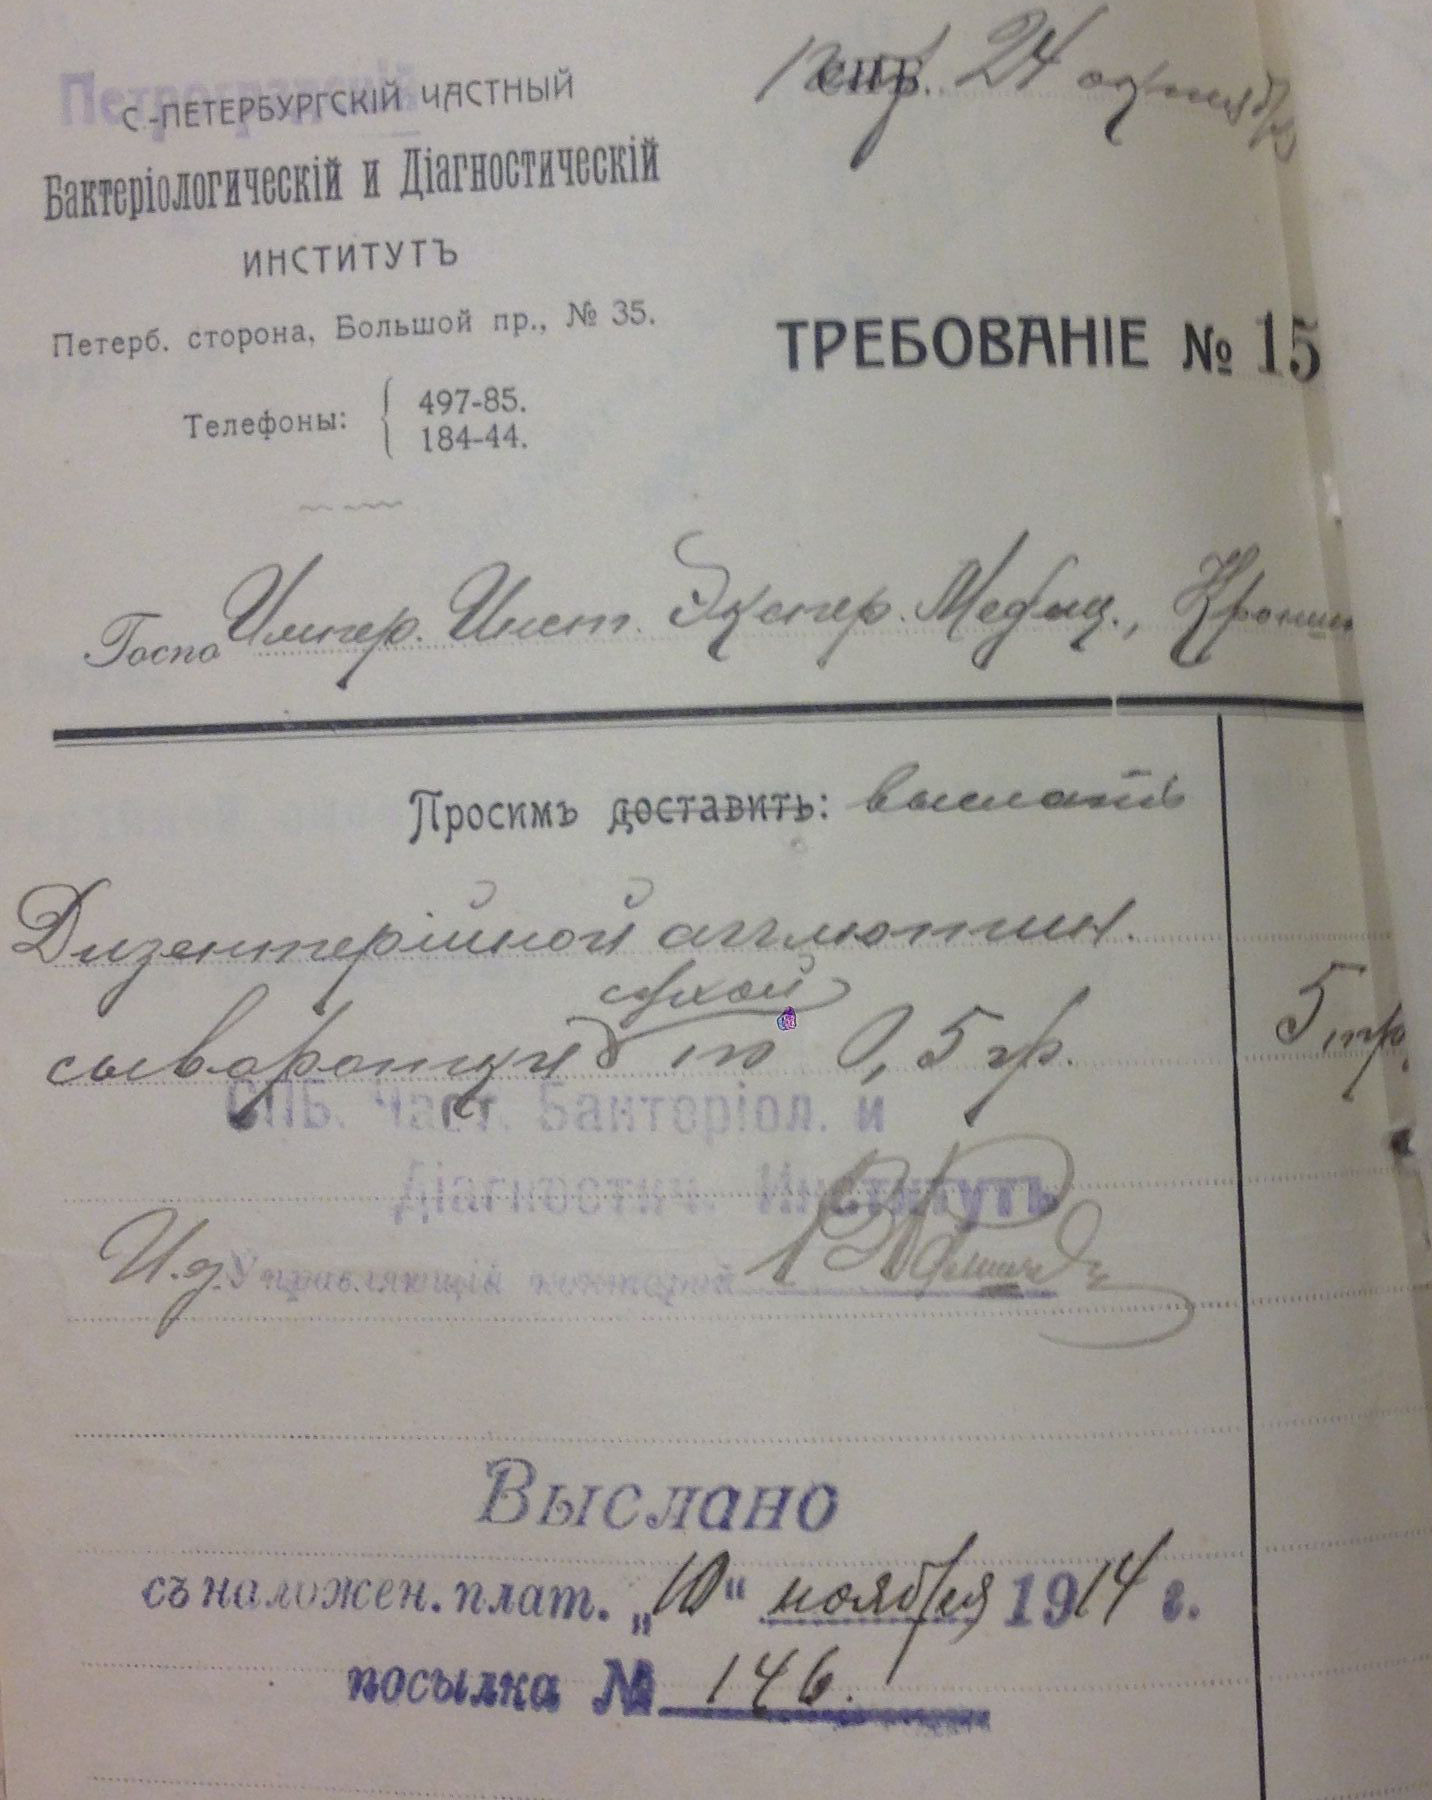 Петроградскій
С.-ПЕТЕРБУРГСКІЙ ЧАСТНЫЙ
Бактеріологическій и Діагностическій
ИНСТИТУТЪ
Петерб. сторона, Большой пр., № 35.
Телефоны: 497-85.
184-44.
СПБ. 24 октября
ТРЕБОВАНІЕ № 15
Госпо Импер. Инст. Экспер. Медиц.,
Просимъ доставить: выслать
Дизентерійной агглютин.
сухой
сыворотки по 0,5 гр. 5 гр.
СПБ. Част. Бактеріол. и
Діагностич. Институтъ
И.д. Управляющій конторой
Выслано
съ наложен. плат. „10" ноября 1914 г.
посылка № 146.